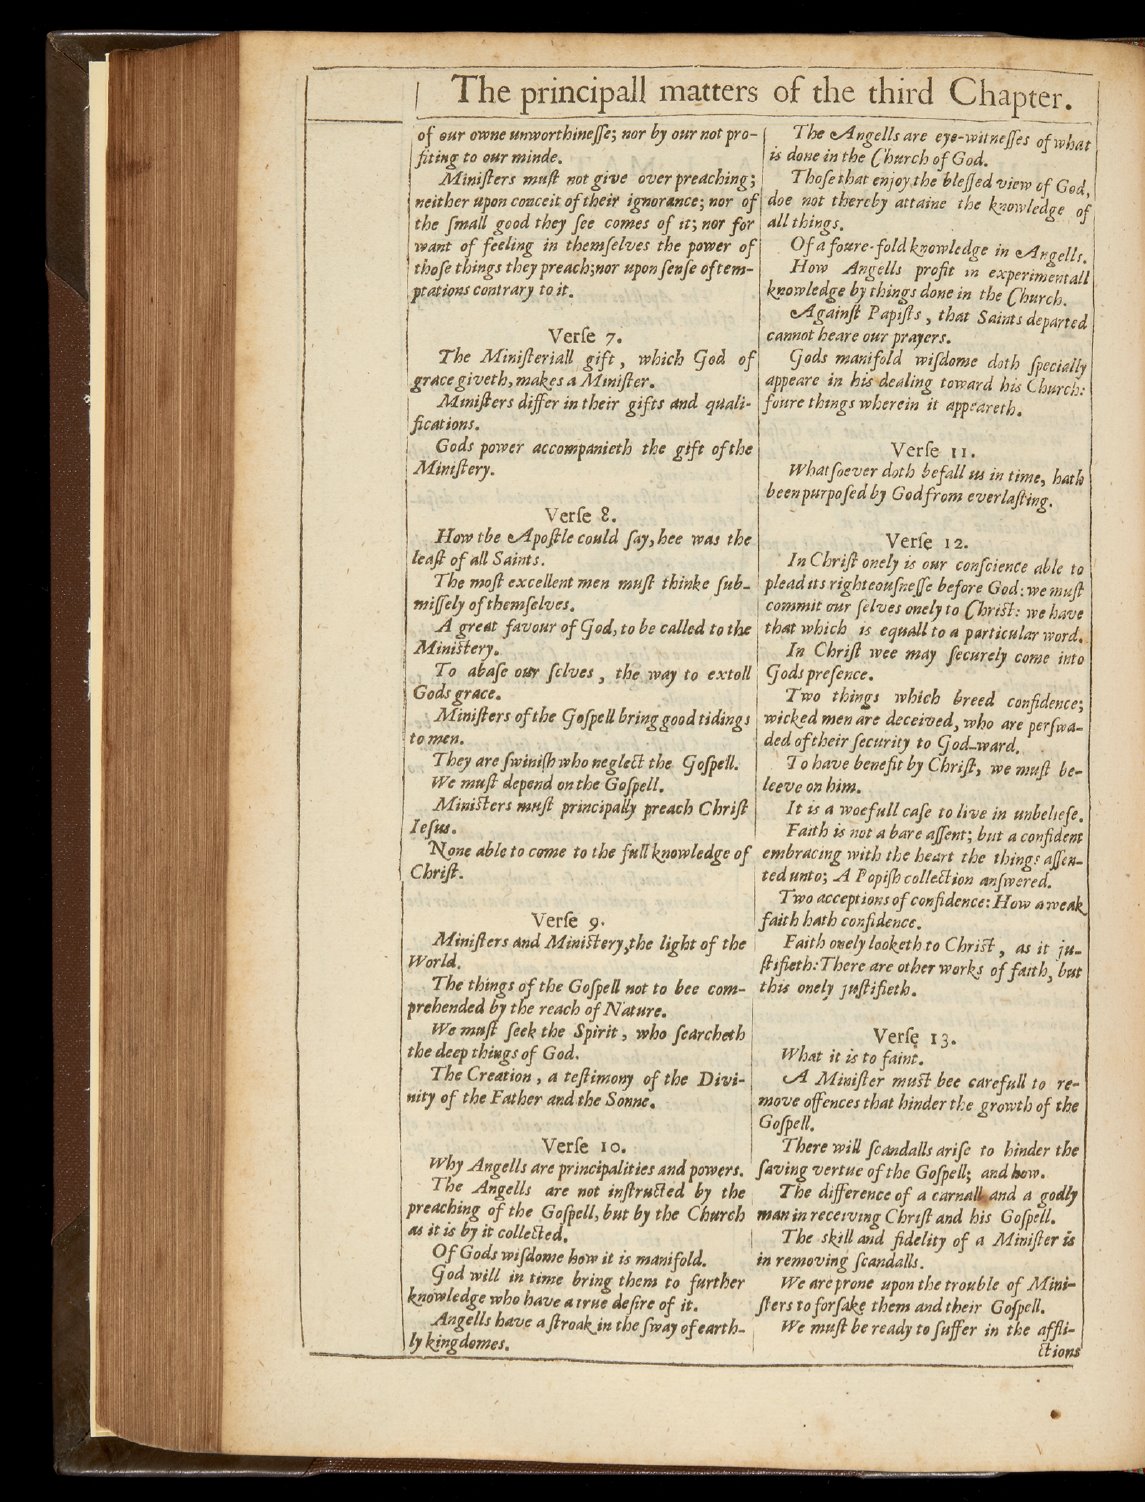 The principall matters of the third Chapter.
of our owne unworthineſſe; nor by our not pro-
fiting to our minde.
Miniſters muſt not give over preaching;
neither upon conceit of their ignorance; nor of
the ſmall good they ſee comes of it; nor for
want of feeling in themſelves the power of
thoſe things they preach; nor upon ſenſe of tem-
ptations contrary to it.
Verſe 7.
The Miniſteriall gift, which God of
grace giveth, makes a Miniſter.
Miniſters differ in their gifts and quali-
fications.
Gods power accompanieth the gift of the
Miniſtery.
Verſe 8.
How tbe Apoſtle could ſay, hee was the
leaſt of all Saints.
The moſt excellent men muſt thinke ſub-
miſſely of themſelves.
A great favour of God, to be called to the
Miniſtery.
To abaſe our ſelves, the way to extoll
Gods grace.
Miniſters of the Goſpell bring good tidings
to men.
They are ſwiniſh who neglect the Goſpell.
We muſt depend on the Goſpell.
Miniſters muſt principally preach Chriſt
Ieſus.
None able to come to the full knowledge of
Chriſt.
Verſe 9.
Miniſters and Miniſtery, the light of the
World.
The things of the Goſpell not to bee com-
prehended by the reach of Nature.
We muſt ſeek the Spirit, who ſearcheth
the deep things of God.
The Creation, a teſtimony of the Divi-
nity of the Father and the Sonne.
Verſe 10.
Why Angells are principalities and powers.
The Angells are not inſtructed by the
preaching of the Goſpell, but by the Church
as it is by it collected.
Of Gods wiſdome how it is manifold.
God will in time bring them to further
knowledge who have a true deſire of it.
Angells have a ſtroak in the ſway of earth-
ly kingdomes.
The Angells are eye-witneſſes of what
is done in the Church of God.
Thoſe that enjoy the bleſſed view of God,
doe not thereby attaine the knowledge of
all things.
Of a foure-fold knowledge in Angells.
How Angells profit in experimentall
knowledge by things done in the Church.
Againſt Papiſts, that Saints departed
cannot heare our prayers.
Gods manifold wiſdome doth ſpecially
appeare in his dealing toward his Church:
foure things wherein it appeareth.
Verſe 11.
Whatſoever doth befall us in time, hath
been purpoſed by God from everlaſting.
Verſe 12.
In Chriſt onely is our conſcience able to
plead its righteouſneſſe before God: we muſt
commit our ſelves onely to Chriſt: we have
that which is equall to a particular word.
In Chriſt wee may ſecurely come into
Gods preſence.
Two things which breed confidence;
wicked men are deceived, who are perſwa-
ded of their ſecurity to God-ward.
To have benefit by Chriſt, we muſt be-
leeve on him.
It is a woefull caſe to live in unbeliefe.
Faith is not a bare aſſent; but a confident
embracing with the heart the things aſſen-
ted unto; A Popiſh collection anſwered.
Two acceptions of confidence: How a weak
faith hath confidence.
Faith onely looketh to Chriſt, as it ju-
ſtifieth: There are other works of faith, but
this onely juſtifieth.
Verſe 13.
What it is to faint.
A Miniſter muſt bee carefull to re-
move offences that hinder the growth of the
Goſpell.
There will ſcandalls ariſe to hinder the
ſaving vertue of the Goſpell; and how.
The difference of a carnall and a godly
man in receiving Chriſt and his Goſpell.
The skill and fidelity of a Miniſter is
in removing ſcandalls.
We are prone upon the trouble of Mini-
ſters to forſake them and their Goſpell.
We muſt be ready to ſuffer in the affli-
ctions